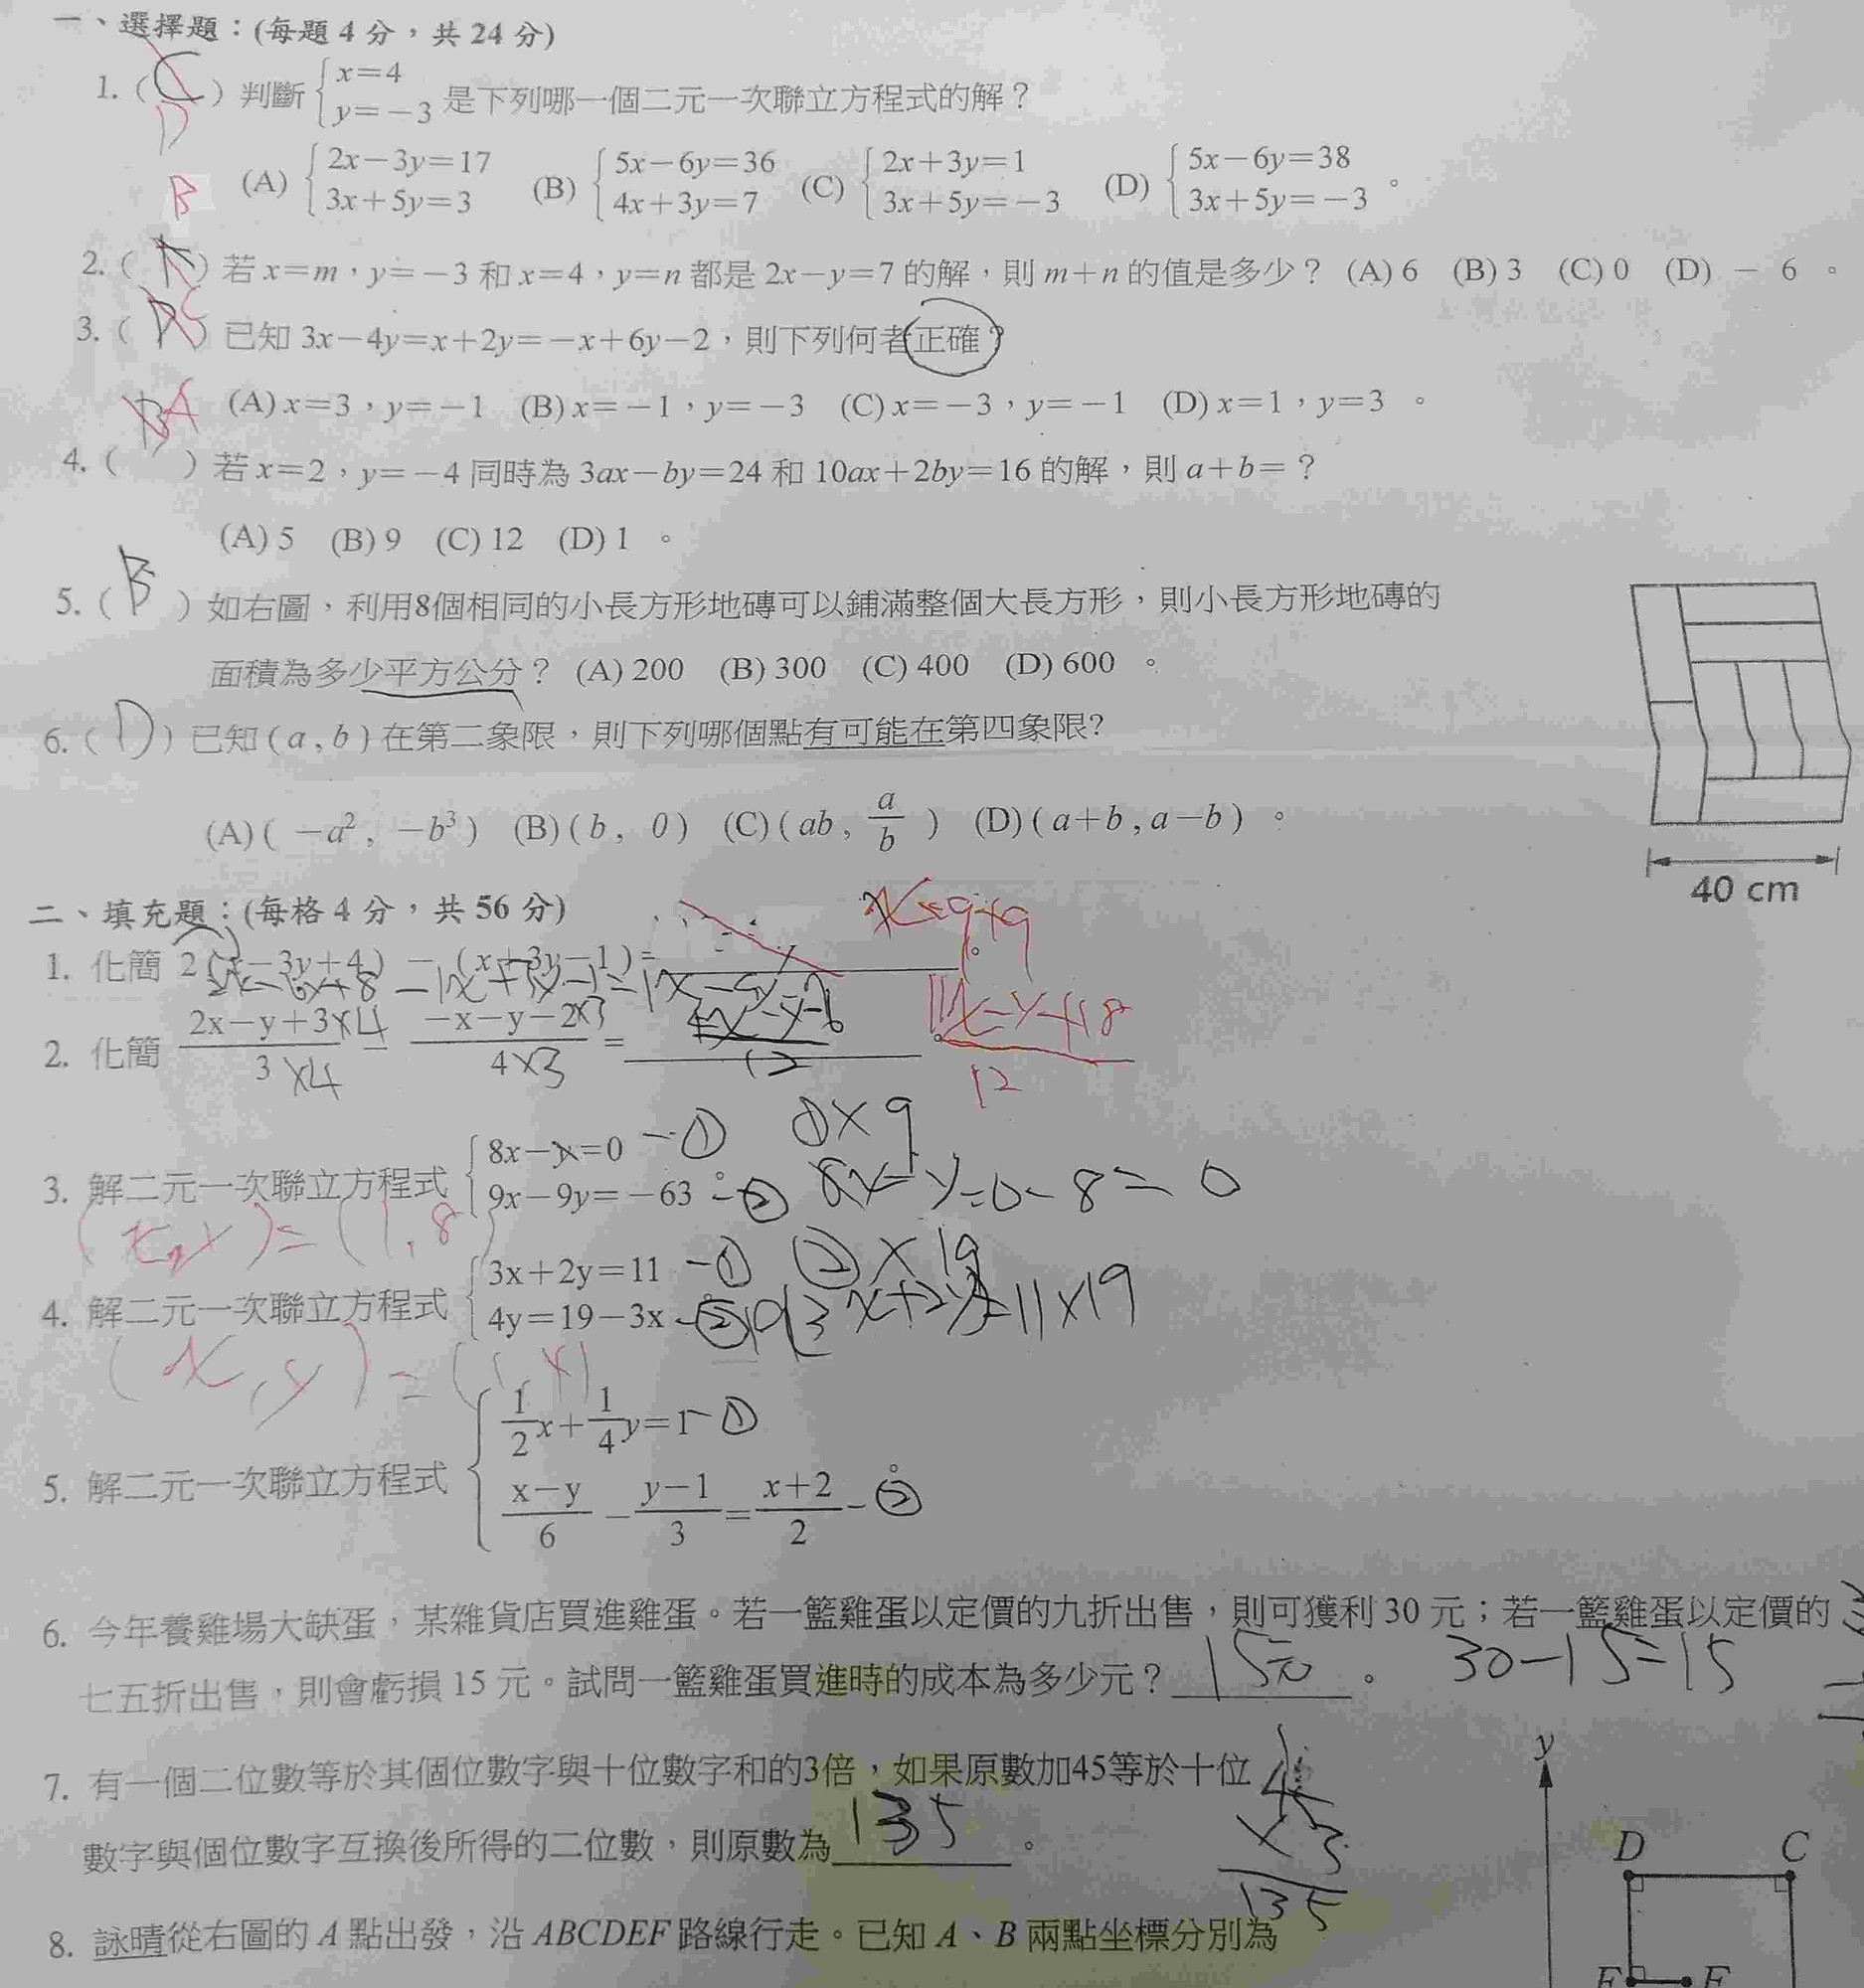 一、選擇題：(每題 4 分，共 24 分)
1. ( C ) 判斷 { x=4 y=−3 是下列哪一個二元一次聯立方程式的解？
D
(A) { 2x−3y=17 3x+5y=3 (B) { 5x−6y=36 4x+3y=7 (C) { 2x+3y=1 3x+5y=−3 (D) { 5x−6y=38 3x+5y=−3 。
B
2. ( ) 若 x=m，y=−3 和 x=4，y=n 都是 2x−y=7 的解，則 m+n 的值是多少？ (A) 6 (B) 3 (C) 0 (D) − 6 。
3. ( ) 已知 3x−4y=x+2y=−x+6y−2，則下列何者正確？
(A) x=3，y=−1 (B) x=−1，y=−3 (C) x=−3，y=−1 (D) x=1，y=3 。
BA
4. ( ) 若 x=2，y=−4 同時為 3ax−by=24 和 10ax+2by=16 的解，則 a+b=？
(A) 5 (B) 9 (C) 12 (D) 1 。
5. ( B ) 如右圖，利用8個相同的小長方形地磚可以鋪滿整個大長方形，則小長方形地磚的
面積為多少平方公分？ (A) 200 (B) 300 (C) 400 (D) 600 。
6. ( D ) 已知 ( a , b ) 在第二象限，則下列哪個點有可能在第四象限?
(A) ( −a², −b³ ) (B) ( b, 0 ) (C) ( ab, a/b ) (D) ( a+b , a−b ) 。
40 cm
二、填充題：(每格 4 分，共 56 分)
1. 化簡 2 (x−3y+4) − (x+3y−1)= 。
x−9y+9
2. 化簡 (2x−y+3)/3 − (−x−y−2)/4 = 。
×4 ×3
×4 ×3
12
11x−y+18
12
3. 解二元一次聯立方程式 { 8x−y=0 9x−9y=−63 。
−① ①×9
−② 8x−y=0−8=0
(x,y)=(1,8)
4. 解二元一次聯立方程式 { 3x+2y=11 4y=19−3x 。
−① ②×19
−② 3x+2y 11×19
(x,y)=(1,4)
5. 解二元一次聯立方程式 { 1/2 x+ 1/4 y=1 (x−y)/6 − (y−1)/3 = (x+2)/2 。
−①
−②
6. 今年養雞場大缺蛋，某雜貨店買進雞蛋。若一籃雞蛋以定價的九折出售，則可獲利 30 元；若一籃雞蛋以定價的
七五折出售，則會虧損 15 元。試問一籃雞蛋買進時的成本為多少元？ 15元 。 30−15=15
7. 有一個二位數等於其個位數字與十位數字和的3倍，如果原數加45等於十位
數字與個位數字互換後所得的二位數，則原數為 135 。
45
×3
135
8. 詠晴從右圖的 A 點出發，沿 ABCDEF 路線行走。已知 A、B 兩點坐標分別為
y
D C
E F